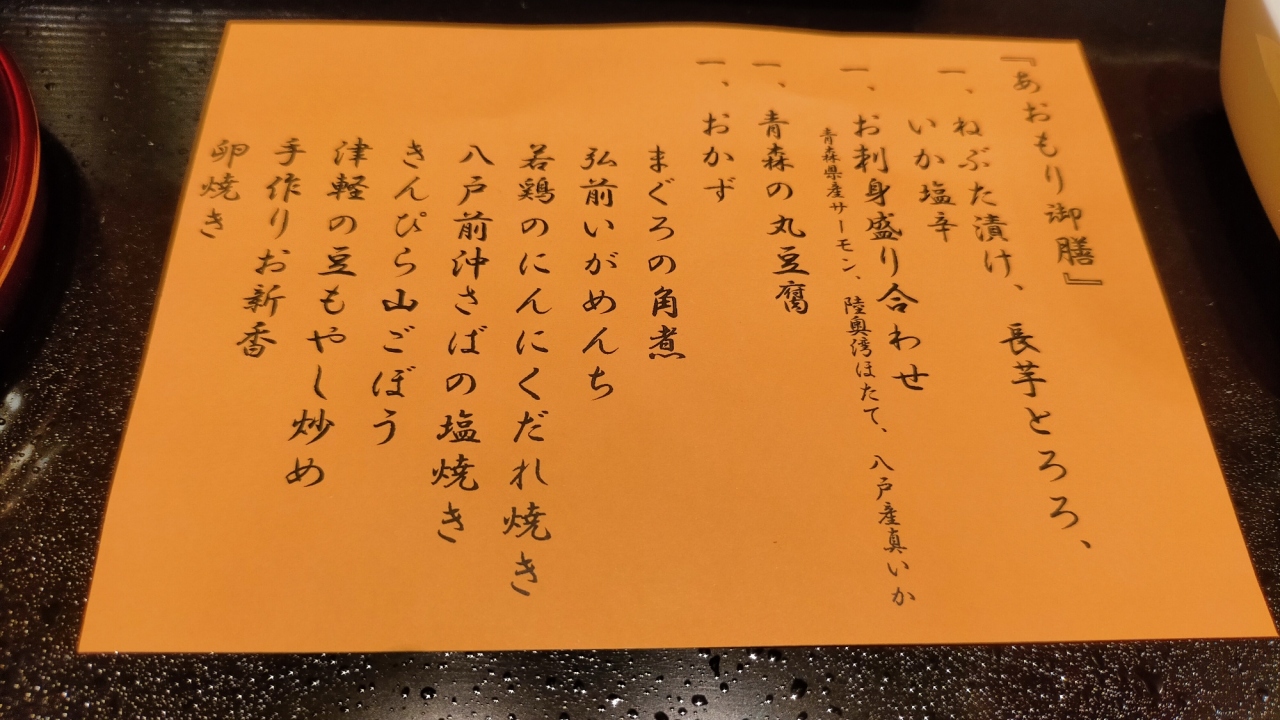 『あおもり御膳』
一、ねぶた漬け、長芋とろろ、
いか塩辛
一、お刺身盛り合わせ
青森県産サーモン、陸奥湾ほたて、八戸産真いか
一、青森の丸豆腐
一、おかず
まぐろの角煮
弘前いがめんち
若鶏のにんにくだれ焼き
八戸前沖さばの塩焼き
きんぴら山ごぼう
津軽の豆もやし炒め
手作りお新香
卵焼き